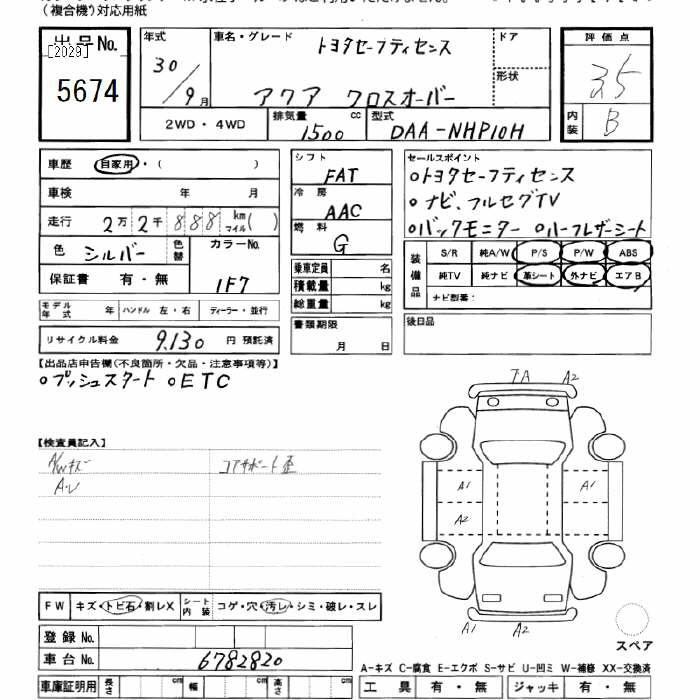 (複合機)対応用紙
出品No.
[2029]
5674
年式
30/9月
車名・グレード
トヨタセーフティセンス
アクア クロスオーバー
ドア
形状
評価点
3.5
内装
B
2WD・4WD
排気量 1500 cc
型式 DAA-NHP10H
車歴 自家用・( )
車検 年 月
走行 2万2千888 km マイル( )
色 シルバー
色替
カラーNo.
1F7
保証書 有・無
モデル年式 年 ハンドル 左・右 ディーラー・並行
リサイクル料金 9,130 円 預託済
シフト FAT
冷房 AAC
燃料 G
乗車定員 名
積載量 kg
総重量 kg
書類期限
月 日
セールスポイント
oトヨタセーフティセンス
oナビ、フルセグTV
oバックモニター oハーフレザーシート
装備品
S/R 純A/W P/S P/W ABS
純TV 純ナビ 革シート 外ナビ エアB
ナビ型番:
後日品
【出品店申告欄(不良箇所・欠品・注意事項等)】
oプッシュスタート oETC
【検査員記入】
A/Wキズ
コアサポート歪
A1
A1
A2
A2
A1
A2
FW キズ・トビ石・割レX
シート内装 コゲ・穴・汚レ・シミ・破レ・スレ
登録No.
車台No. 6782820
車庫証明用 長さ cm 幅 cm 高さ cm
スペア
A-キズ C-腐食 E-エクボ S-サビ U-凹ミ W-補修 XX-交換済
工具 有・無 ジャッキ 有・無